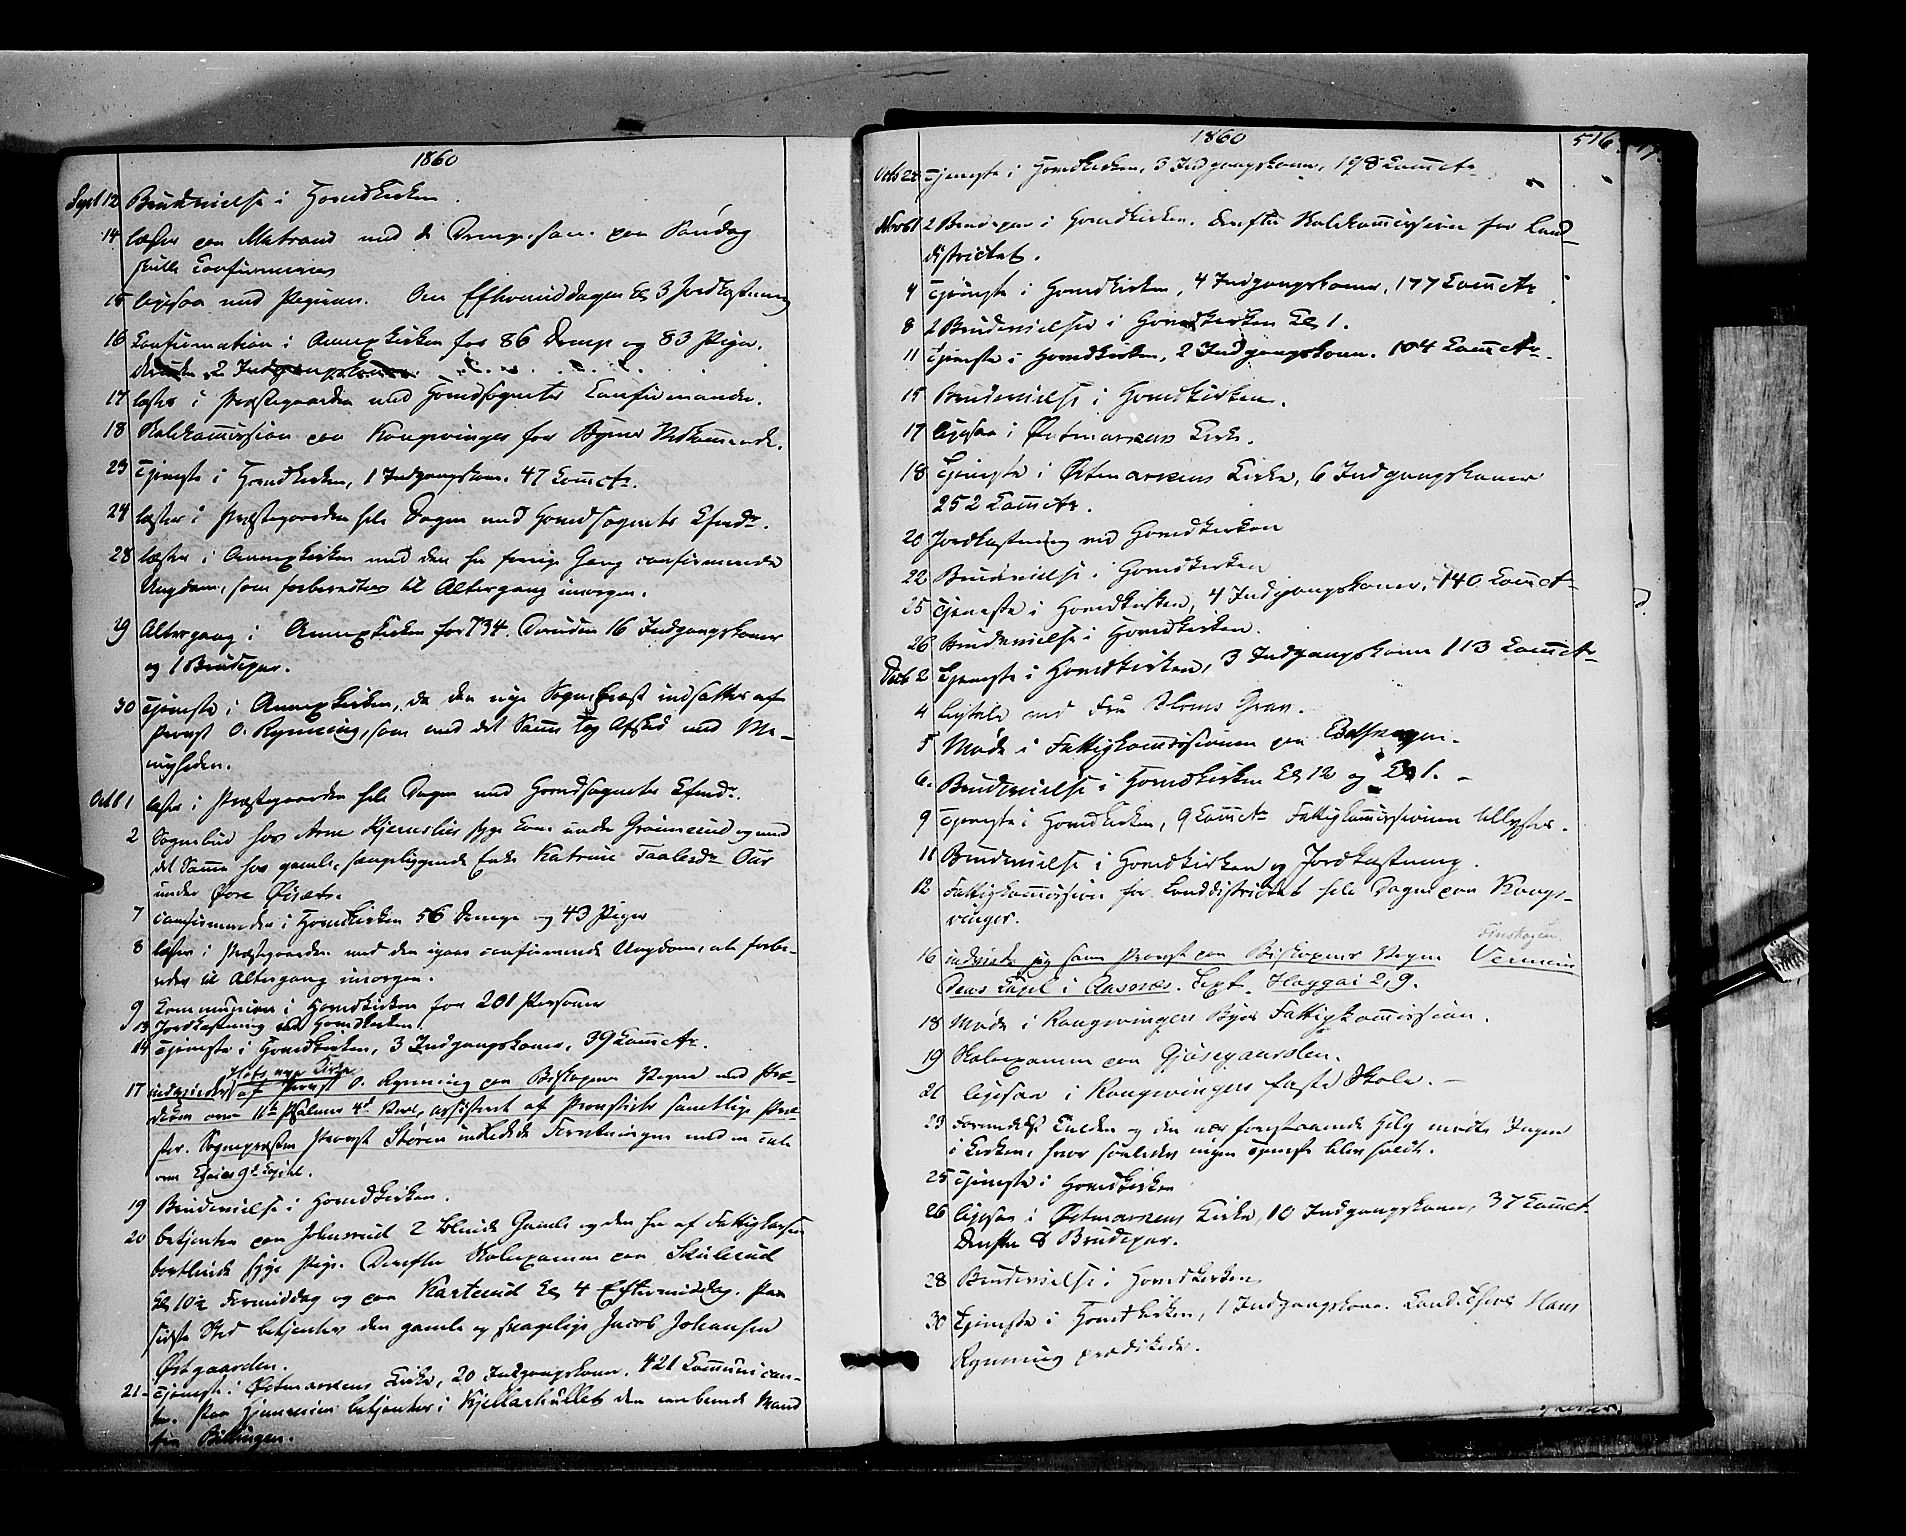 1860
Sept 12 Brudevielse i Hovedkirken.
14 læste paa Matrand med de Drenge, som paa Søndag
skulle Confirmeres
15 ligesaa med Pigerne. Om Eftermiddagen Kl 3 Jordkastning
16 Confirmation i Annexkirken for 86 Drenge og 83 Piger.
desuden 2 Indgangskoner.
17 læste i Præstegaarden med Hovedsognets Confirmander.
18 Skolekommission paa Kongsvinger for Byens Vedkommende.
23 Tjeneste i Hovedkirken, 1 Indgangskone. 47 Communicanter.
24 læste i Præstegaarden hele Dagen med Hovedsognets Cfmdr.
28 læste i Annexkirken med den her forrige Gang confirmerede
Ungdom, som forberedtes til Altergang imorgen.
29 Altergang i Annexkirken for 734. Desuden 16 Indgangskoner
og 1 Brudepar.
30 Tjeneste i Annexkirken, da den nye Sognepræst indsattes af
Provst O. Rynning, som med det Samme tog Afsked med Me-
nigheden.
Octb 1 læste i Præstegaarden hele Dagen med Hovedsognets Cfmdr.
2 Sognebud hos Arne Kjernslies syge Kone under Grønnerud og med
det Samme hos gamle, sengeliggende Enke Katrine Taalesdr Our
under Øvre Øisæt.
7 Confirmerede i Hovedkirken 56 Drenge og 43 Piger
8 læste i Præstegaarden med den igaar confirmerede Ungdom, at forbe-
redes til Altergang imorgen.
9 Communion i Hovedkirken for 201 Personer
13 Jordkastning ved Hovedkirken
14 Tjeneste i Hovedkirken, 3 Indgangskoner, 39 Commctr.
Hofs nye Kirke
17 indviedes af Provst O. Rynning paa Biskopens Vegne med Præ-
diken over 11te Psalmes 4d Vers, assisteret af Provstiets samtlige Præ-
ster. Sognepræsten Provst Støren indledede Forretningen med en Tale
over Esaias 9d Capitel.
19 Brudevielse i Hovedkirken.
20 betjente paa Johnsrud 2 blinde Gamle og den her af Fattigkassen
bortleiede syge Pige. Derefter Skoleexamen paa Skulerud
Kl 10½ Formiddag og paa Karterud Kl 4 Eftermiddag. Paa
sidste Sted betjentes den gamle og svagelige Jacob Johansen
Østgaarden.
21 Tjeneste i Østmarkens Kirke, 20 Indgangskoner. 421 Communican-
ter. Paa Hjemveien betjentes i Kjellarhullet den vanbrende Mand
fra Billingen.
1860
516.
Octb 28 Tjeneste i Hovedkirken, 3 Indgangskoner, 198 Commctr
Novb 1 2 Brudepar i Hovedkirken. Derefter Skolekommission for Land-
districtet.
4 Tjeneste i Hovedkirken, 4 Indgangskoner, 177 Commctr
8 2 Brudevielser i Hovedkirken Kl 1.
11 Tjeneste i Hovedkirken, 2 Indgangskoner. 104 Commctr.
15 Brudevielse i Hovedkirken.
17 ligesaa i Østmarkens Kirke.
18 Tjeneste i Østmarkens Kirke, 6 Indgangskoner
252 Commctr.
20 Jordkastning ved Hovedkirken
22 Brudevielse i Hovedkirken
25 Tjeneste i Hovedkirken, 4 Indgangskoner, 140 Commctr
26 Brudevielse i Hovedkirken.
Decb 2 Tjeneste i Hovedkirken, 3 Indgangskoner 113 Commctr
4 Ligtale ved Fru Bloms Grav.
5 Møde i Fattigkommissionen paa
6. Brudevielse i Hovedkirken Kl 12 og Kl 1.
9 Tjeneste i Hovedkirken, 9 Commctr Fattigkommissionen tillyses.
11 Brudevielse i Hovedkirken og Jordkastning.
12 Fattigkommission for Landdistrictet hele Dagen paa Kongs-
vinger.
Finskogen
16 indviede jeg som Provst paa Biskopens Vegne Vermun-
dens Capel i Aasnæs. Text. Haggai 2,9.
18 Møde i Kongsvingers Byes Fattigkommission.
19 Skoleexamen paa Gjøsegaarden.
21 ligesaa i Kongsvingers faste Skole.
23 Formedelst Kulden og den nær forestaaende Helg mødte Ingen
i Kirken, hvor saaledes ingen Tjeneste blev holdt.
25 Tjeneste i Hovedkirken
26 ligesaa i Østmarkens Kirke, 10 Indgangskoner, 37 Commctr.
Derefter 8 Brudepar.
28 Brudevielse i Hovedkirken
30 Tjeneste i Hovedkirken, 1 Indgangskone. Cand. Theol Hans
Rynning prædikede.